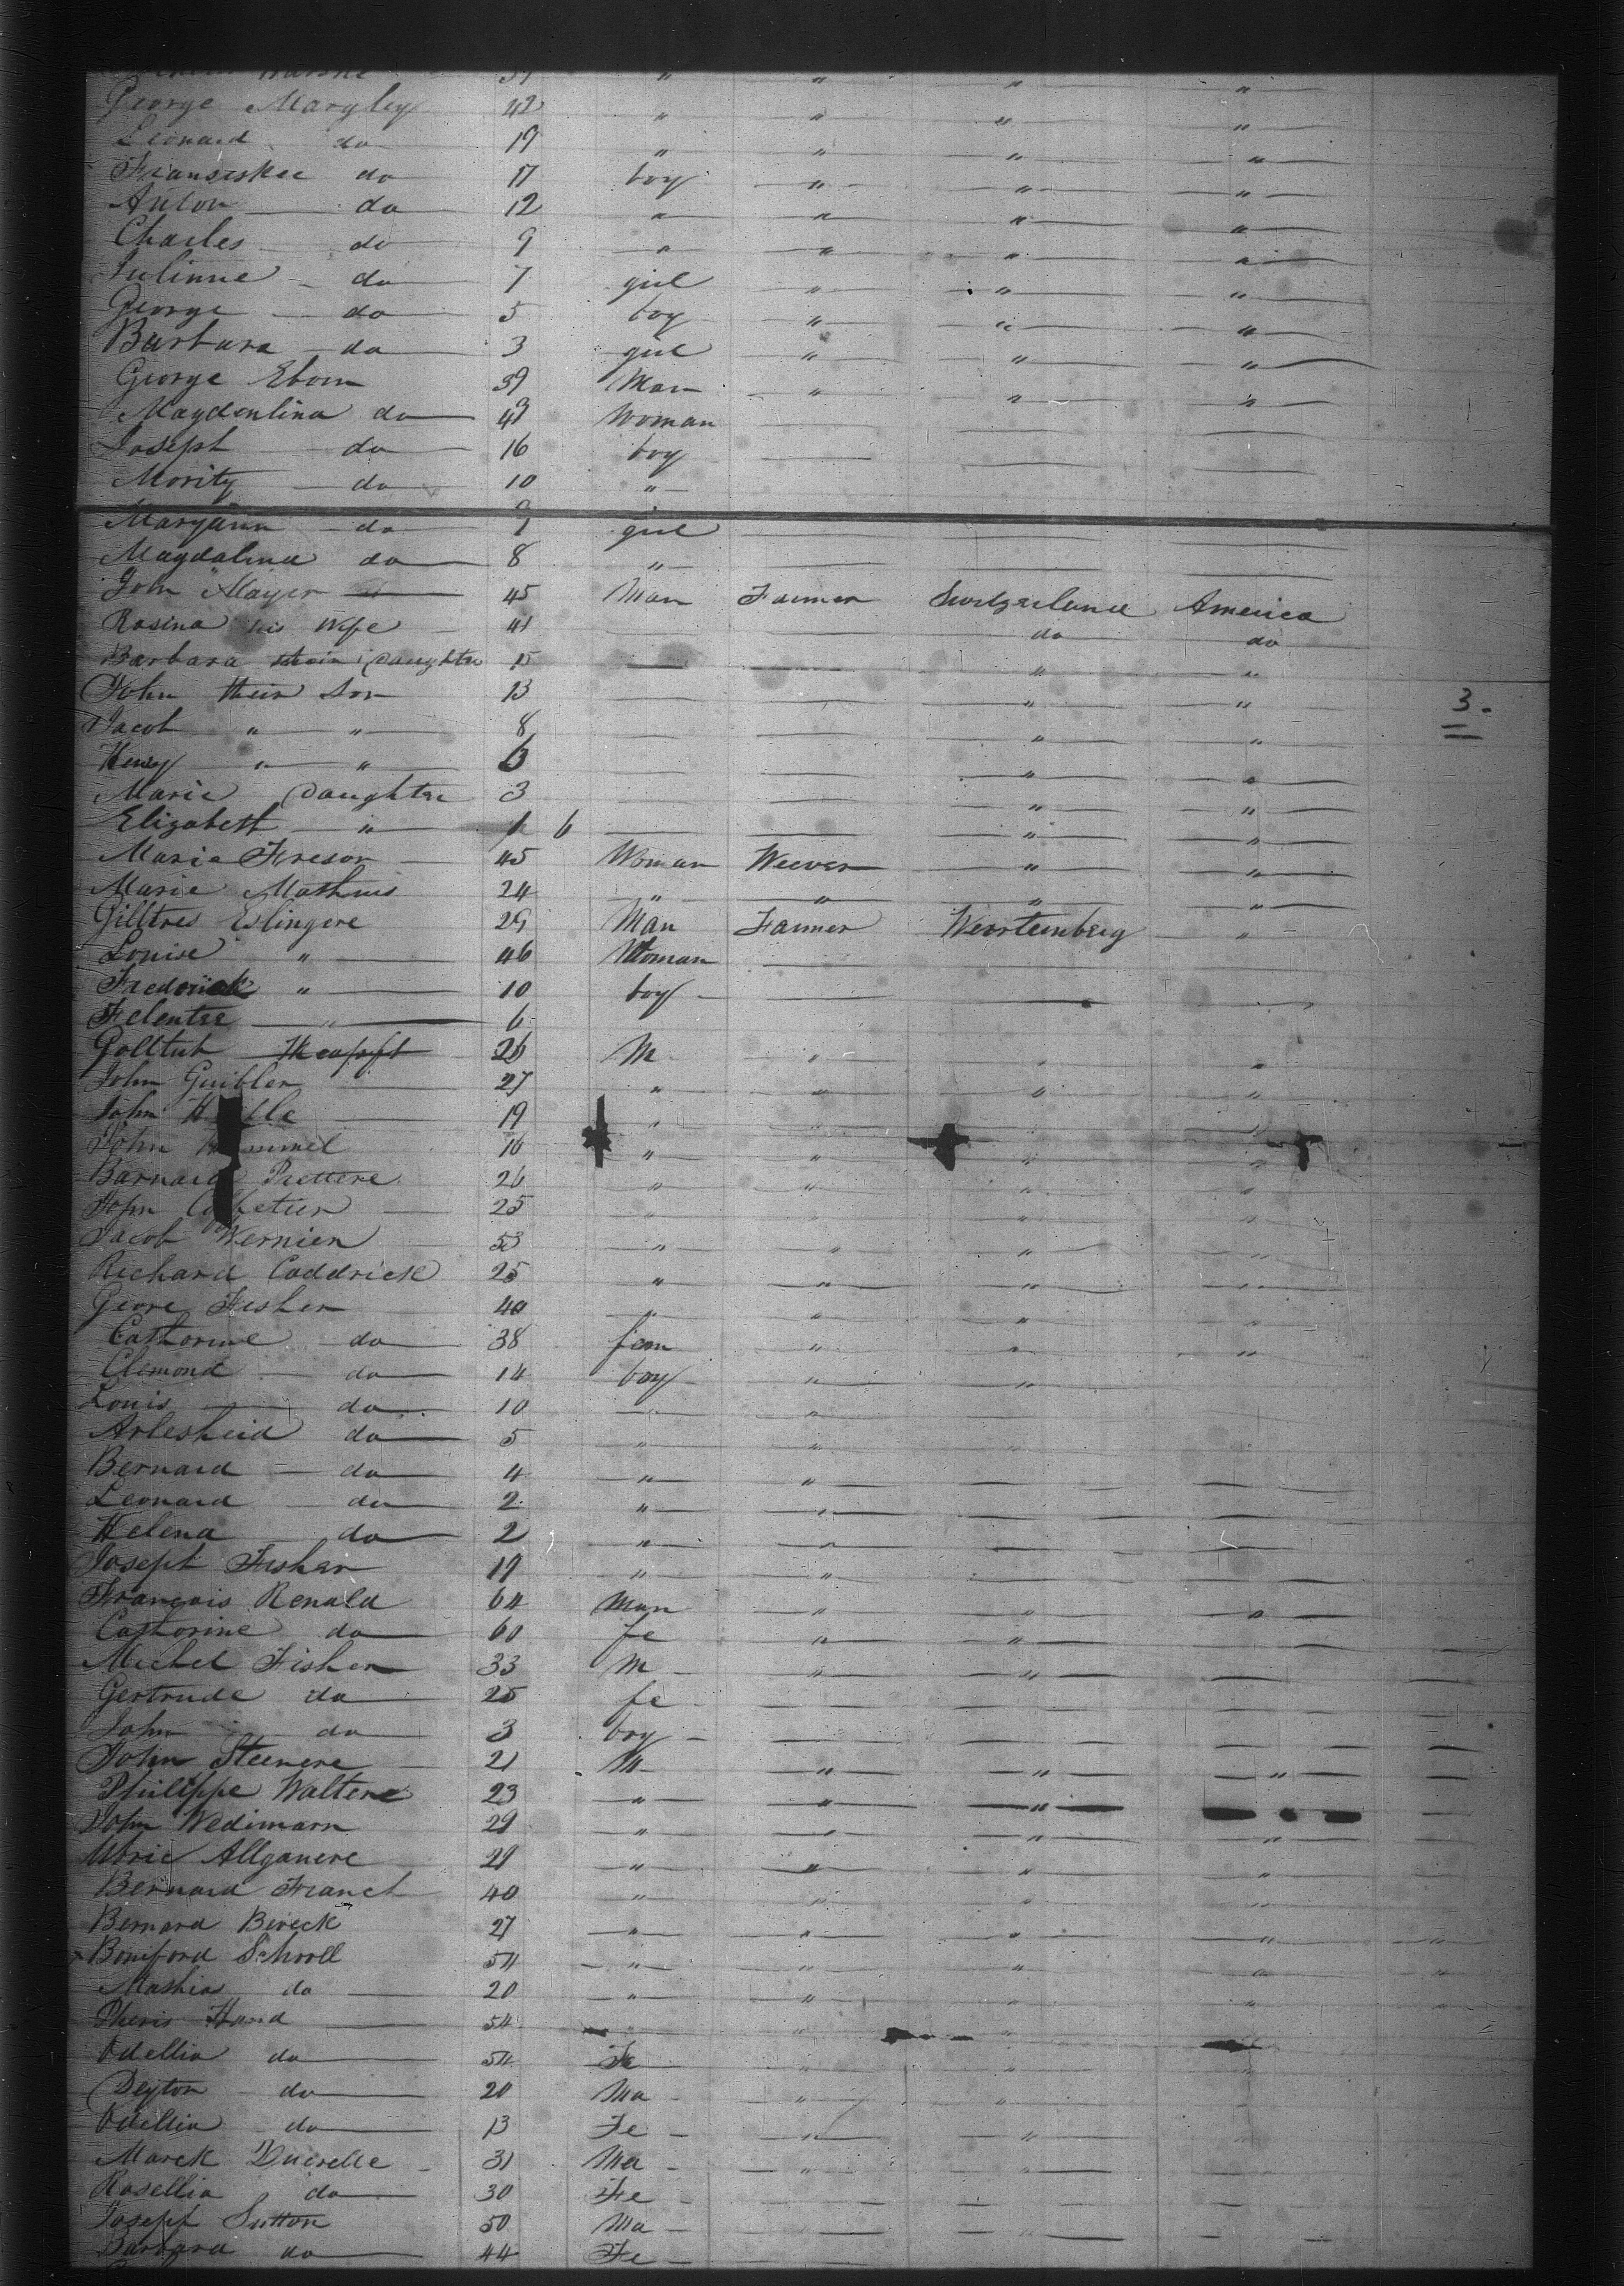 George Margley 42 " " " "
Leonard do 19 " " " "
Fransiskee do 17 boy " " "
Anton do 12 " " " "
Charles do 9 " " " "
Julinne do 7 girl " " "
George do 5 boy " " "
Barbara do 3 girl " " "
George Ebom 39 Man " " "
Magdenlina do 49 Woman
Joseph do 16 boy
Mority do 10 "
Maryann do 9 girl
Magdalina do 8 "
John Mayer 45 Man Farmer Switzerland America
Rosina his Wife 41 do do
Barbara their Daughter 15 " "
John their Son 13 " "
Jacob " " 8 " "
Henry " " 6 " "
Marie Daughter 3 " "
Elizabeth " 1 6 " "
Maria Freson 45 Woman Weever " "
Marie Mathuis 24 " " " "
Gilltres Eslingere 29 Man Farmer Werstemberg "
Louise " 46 Woman
Fredorick " 10 boy
Felentre " 6
Golltub 26 M " " "
John Guibler 27 " " " "
John 19 " "
John 16 " " " "
Barnard Prettere 26 " " " "
John 25 " " " "
Jacob Wernier 53 " " " "
Richard Coddrick 25 " " " "
Geore Fisher 40 " " " "
Cathorine do 38 fem " " "
Clemond do 14 boy " "
Louis do 10 "
Arlesheid do 5 " "
Bernard do 4 " "
Leonard do 2 " "
Helena do 2 " "
Joseph Fishar 19 " "
François Renald 64 Man " " "
Cathorine do 60 fe " "
Michel Fisher 33 M " "
Gertrude do 25 fe
John do 3 boy
John Steenere 21 M " " "
Philippe Waltere 23 " " "
John Wedimann 29 " " " "
Ulric Allganere 29 " " " "
Bernard Franch 40 " " " "
Bernard Bireck 27 " " " " "
Boniford Schooll 54 " " " " "
Mathias do 20 " " " " "
Pheris 54 " "
Odellia do 54 Fe " " "
Deyton do 20 Ma " "
Odillia do 13 Fe " "
Marck Ducrelle 31 Ma " "
Rosellia do 30 Fe
Joseph Sutton 50 Ma
Barbara do 44 Fe
3.